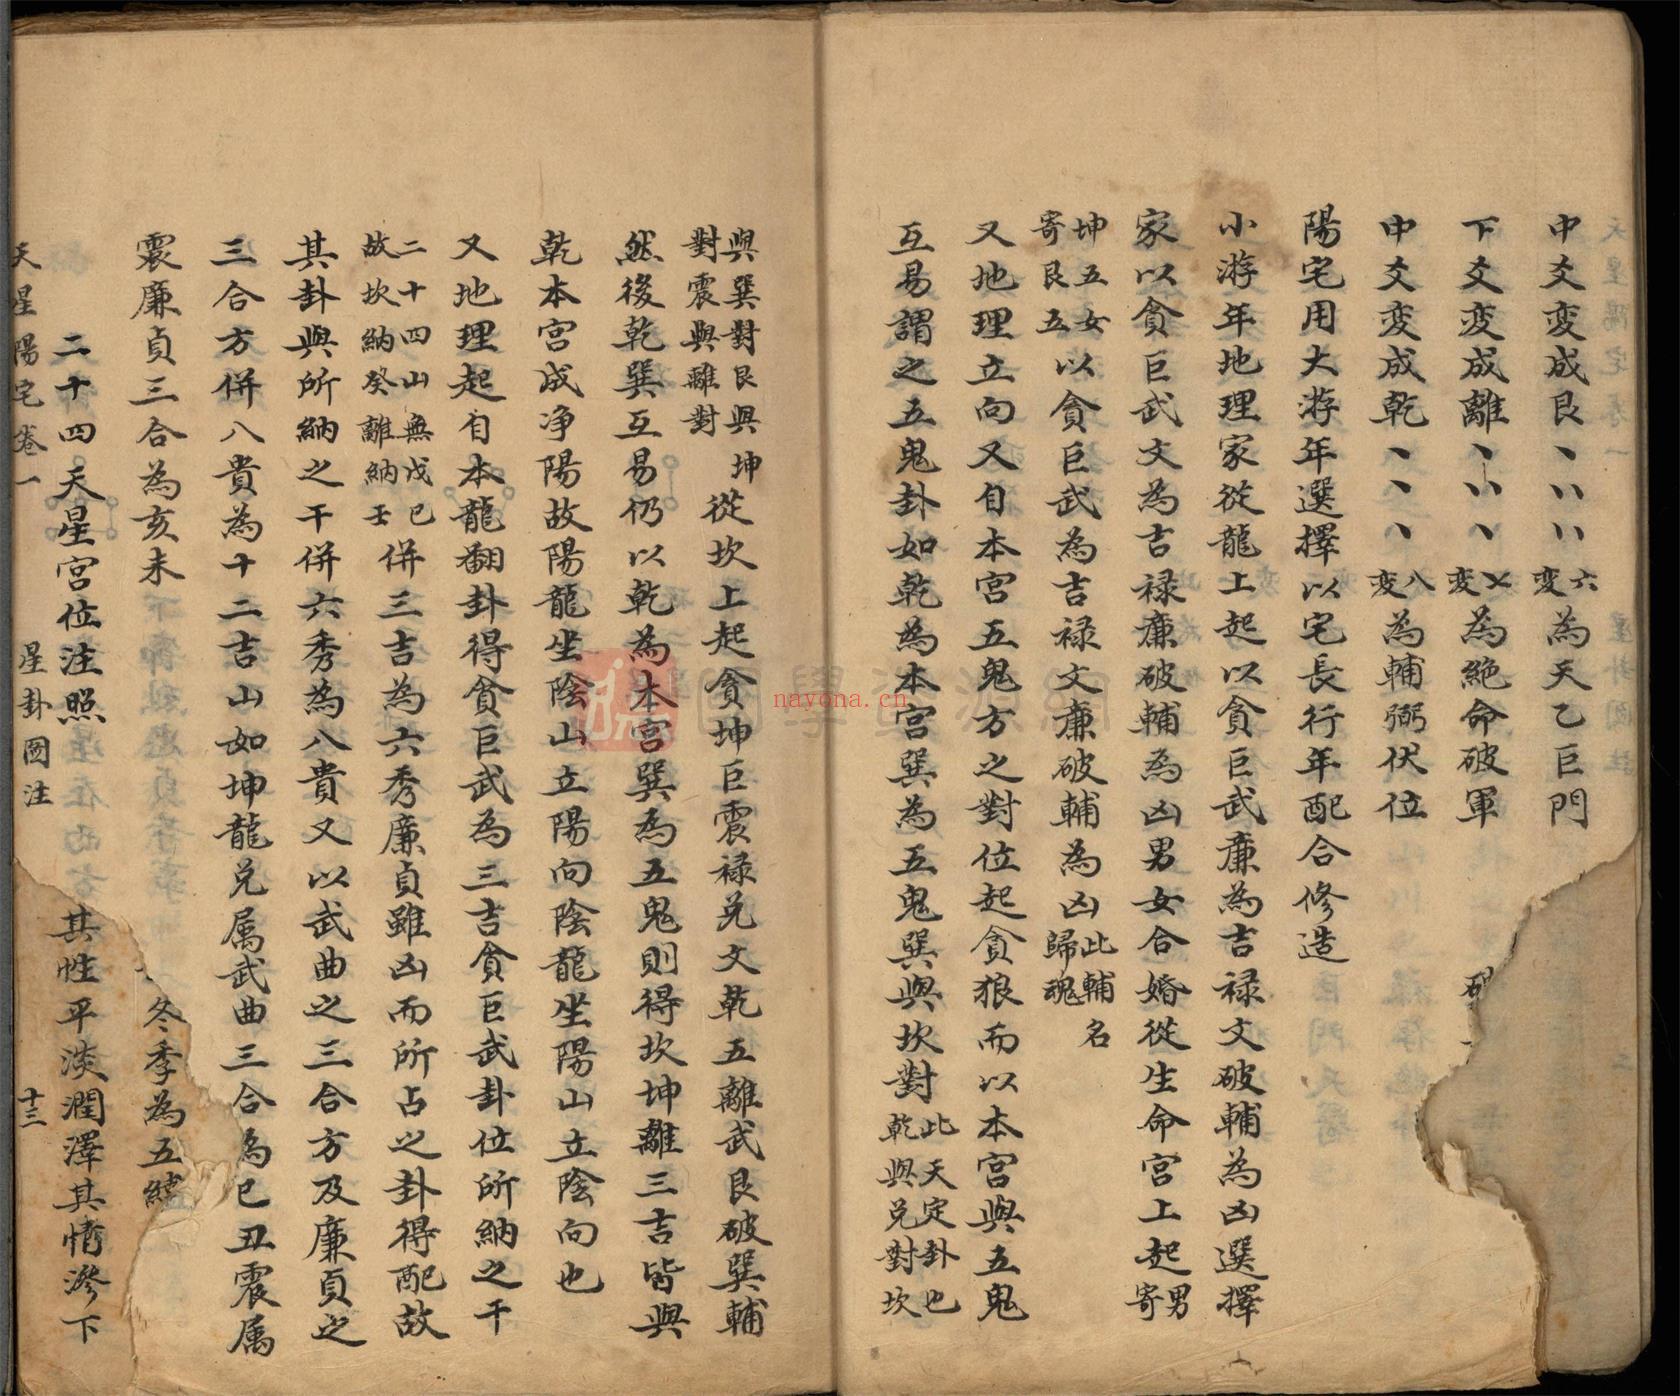 中爻変成艮丶丷丷六変為天乙巨門
下爻変成離丶丷丶七変為絶命破軍
中爻変成乾丶丶丶八変為輔弼伏位
陽宅用大游年選擇以宅長行年配合修造
小游年地理家從龍上起以貪巨武廉為吉禄文破輔為凶選擇
家以貪巨武文為吉禄廉破輔為凶男女合婚從生命宮上起男寄
坤五女寄艮五以貪巨武為吉禄文廉破輔為凶此輔名歸魂
又地理立向又自本宮五鬼方之對位起貪狼而以本宮與五鬼
互易謂之五鬼卦如乾為本宮巽為五鬼巽與坎對此天定卦也乾與兌對坎
與巽對艮與坤對震與離對從坎上起貪坤巨震禄兌文乾五離武艮破巽輔
然後乾巽互易仍以乾為本宮巽為五鬼則得坎坤離三吉皆與
乾本宮成净陽故陽龍坐陰山立陽向陰龍坐陽山立陰向也
又地理起自本龍翻卦得貪巨武為三吉貪巨武卦位所納之干
二十四山無戊己故坎納癸離納壬併三吉為六秀廉貞雖凶而所占之卦得配故
其卦與所納之干併六秀為八貴又以武曲之三合方及廉貞之
三合方併八貴為十二吉山如坤龍兌属武曲三合為巳丑震属
震廉貞三合為亥未
冬季為五
二十四天星宮位注照 其性平淡潤澤其情滲下
天星陽宅卷一 星卦圖注 十三
國學資源網
nayona.cn